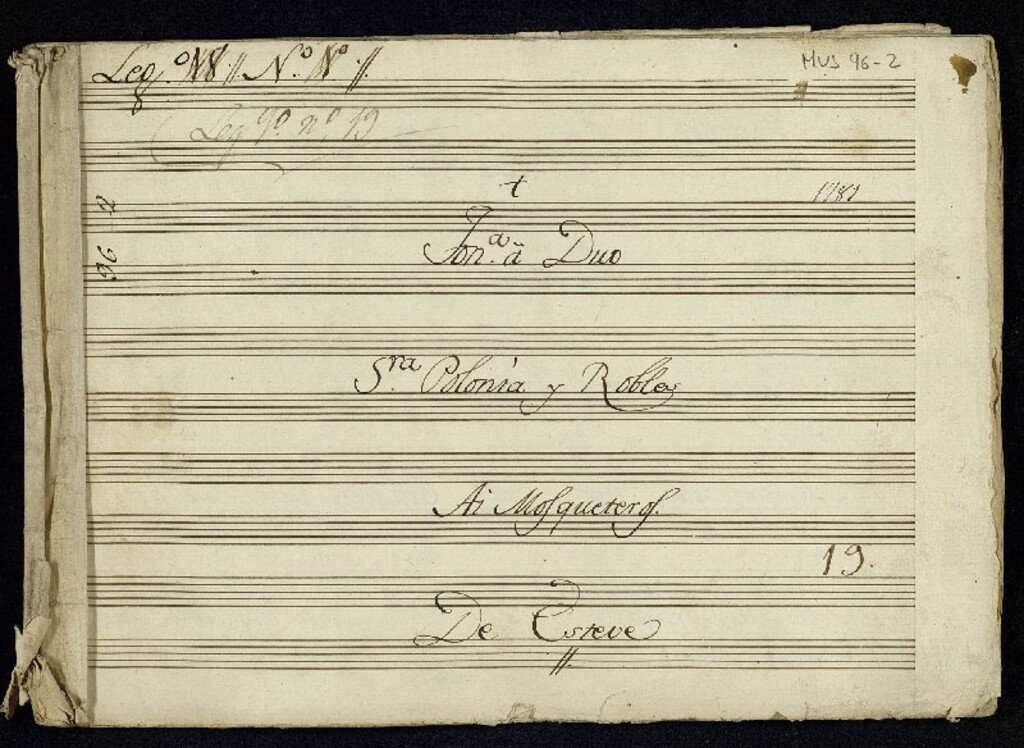 Leg.º // N.º N.º //
8
MUS 96-2
Leg 9º nº 19
1781
96 2
Ton.ª â Duo
S.ra Polonia y Robles
Ai Mosqueteros.
19.
De Esteve
//